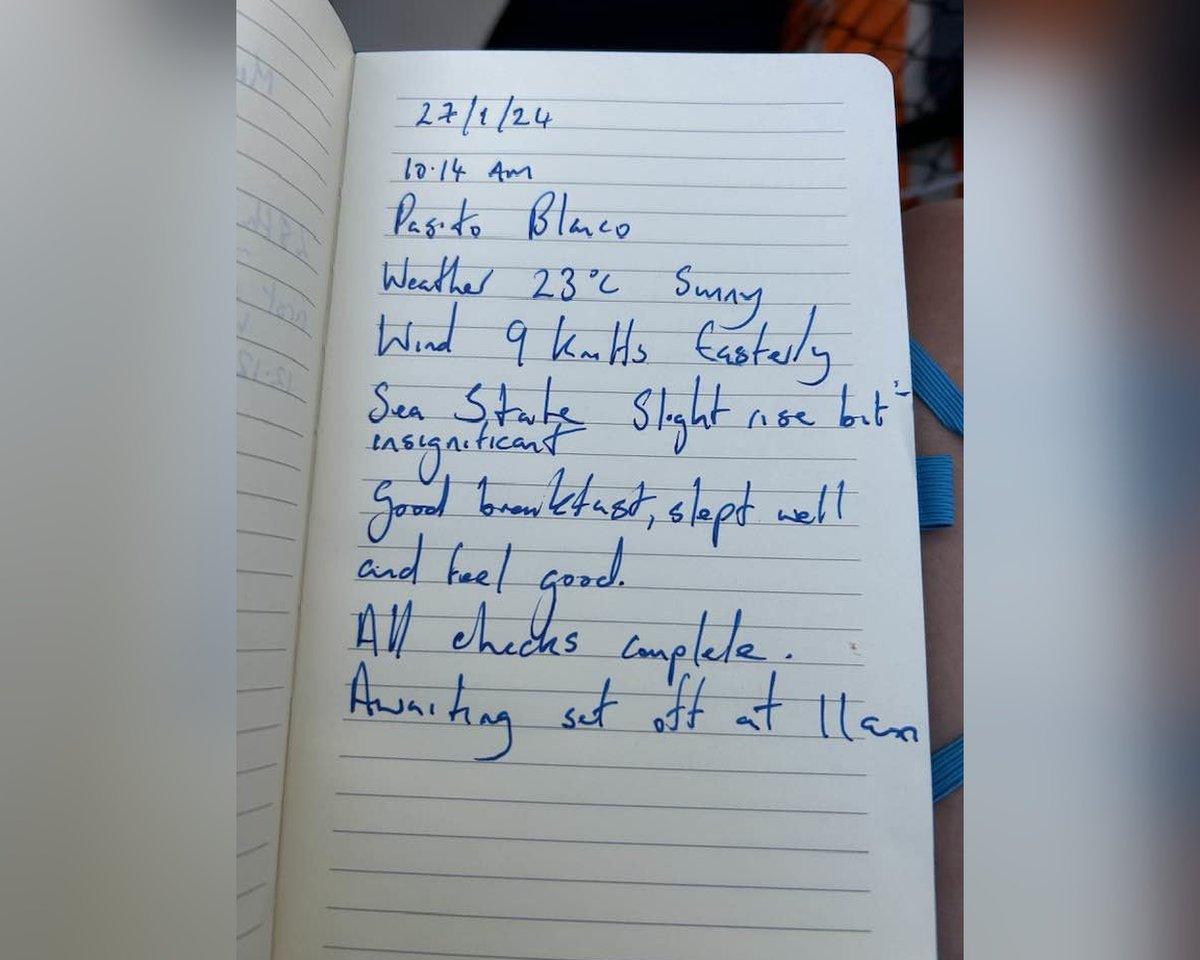 27/1/24
10.14 Am
Pasito Blanco
Weather 23°C Sunny
Wind 9 KmHs Easterly
Sea State Slight rise but :-
insignificant
Good breakfast, slept well
and feel good.
All checks complete.
Awaiting set off at 11am